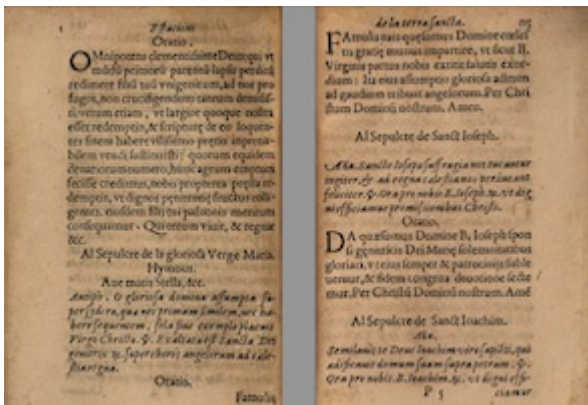 Oratio.
OMnipotens clementissime Deus, qui vt
redimere filiū tuū vnigenitum, ad nos pro
fugos, non crucifigendum tantum
sti, verum etiam, vt largior quoque nostra
esset redemptio, & scripturæ de eo loquen-
tis finem habere vilissimo pretio
bilem vendi sustinuisti: quorum equidem
denariorum numero, hunc agrum emptum
fecisse credimus, nobis propterea
demptis, vt dignos pœnitentiæ fructus colli
gentes, eiusdem filij tui passionis
consequamur. Qui tecum viuit, & regnat
&c.
Al Sepulcre de la gloriosa Verge Maria.
Hymnus.
Aue maris Stella, &c.
Antiph. O gloriosa domina assumpta su-
per sydera, quæ nec primam similem, nec ha-
bere sequentem: sola sine exemplo placuisti
Virgo Christo. Exaltata est sancta Dei
genitrix. super choros angelorum ad cæle-
stia regna.
Oratio.
Famulis
de la terra sancta.
FAmulis tuis quæsumus Domine cœles-
tis gratiæ munus impartire, vt sicut B.
Virginis partus nobis extitit salutis exor-
dium: ita eius assumptio gloriosa
ad gaudium tribuat angelorum. Per Chri
stum Dominū nostrum. Amen.
Al Sepulcre de Sanct Ioseph.
Sancte Ioseph suffragia nos tueantur
iugiter, & ad regna cælestia nos perducant
feliciter. Ora pro nobis B. Ioseph. vt dig
ni efficiamur promissionibus Christi.
Oratio.
DA quæsumus Domine B. Ioseph spon
si genitricis Dei Mariæ solemnitatibus
gloriari, vt eius semper & patrocinijs suble
uemur, & fidem congrua deuotione secte
mur. Per Christū Dominū nostrum. Amē
Al Sepulcre de Sanct Ioachim.
Similauit te Deus Ioachim viro sapiēti, qui
ædificauit domum suam supra petram.
Ora pro nobis B. Ioachim. vt digni effi-
ciamur